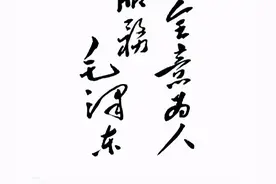 全意为人
服務
毛泽东